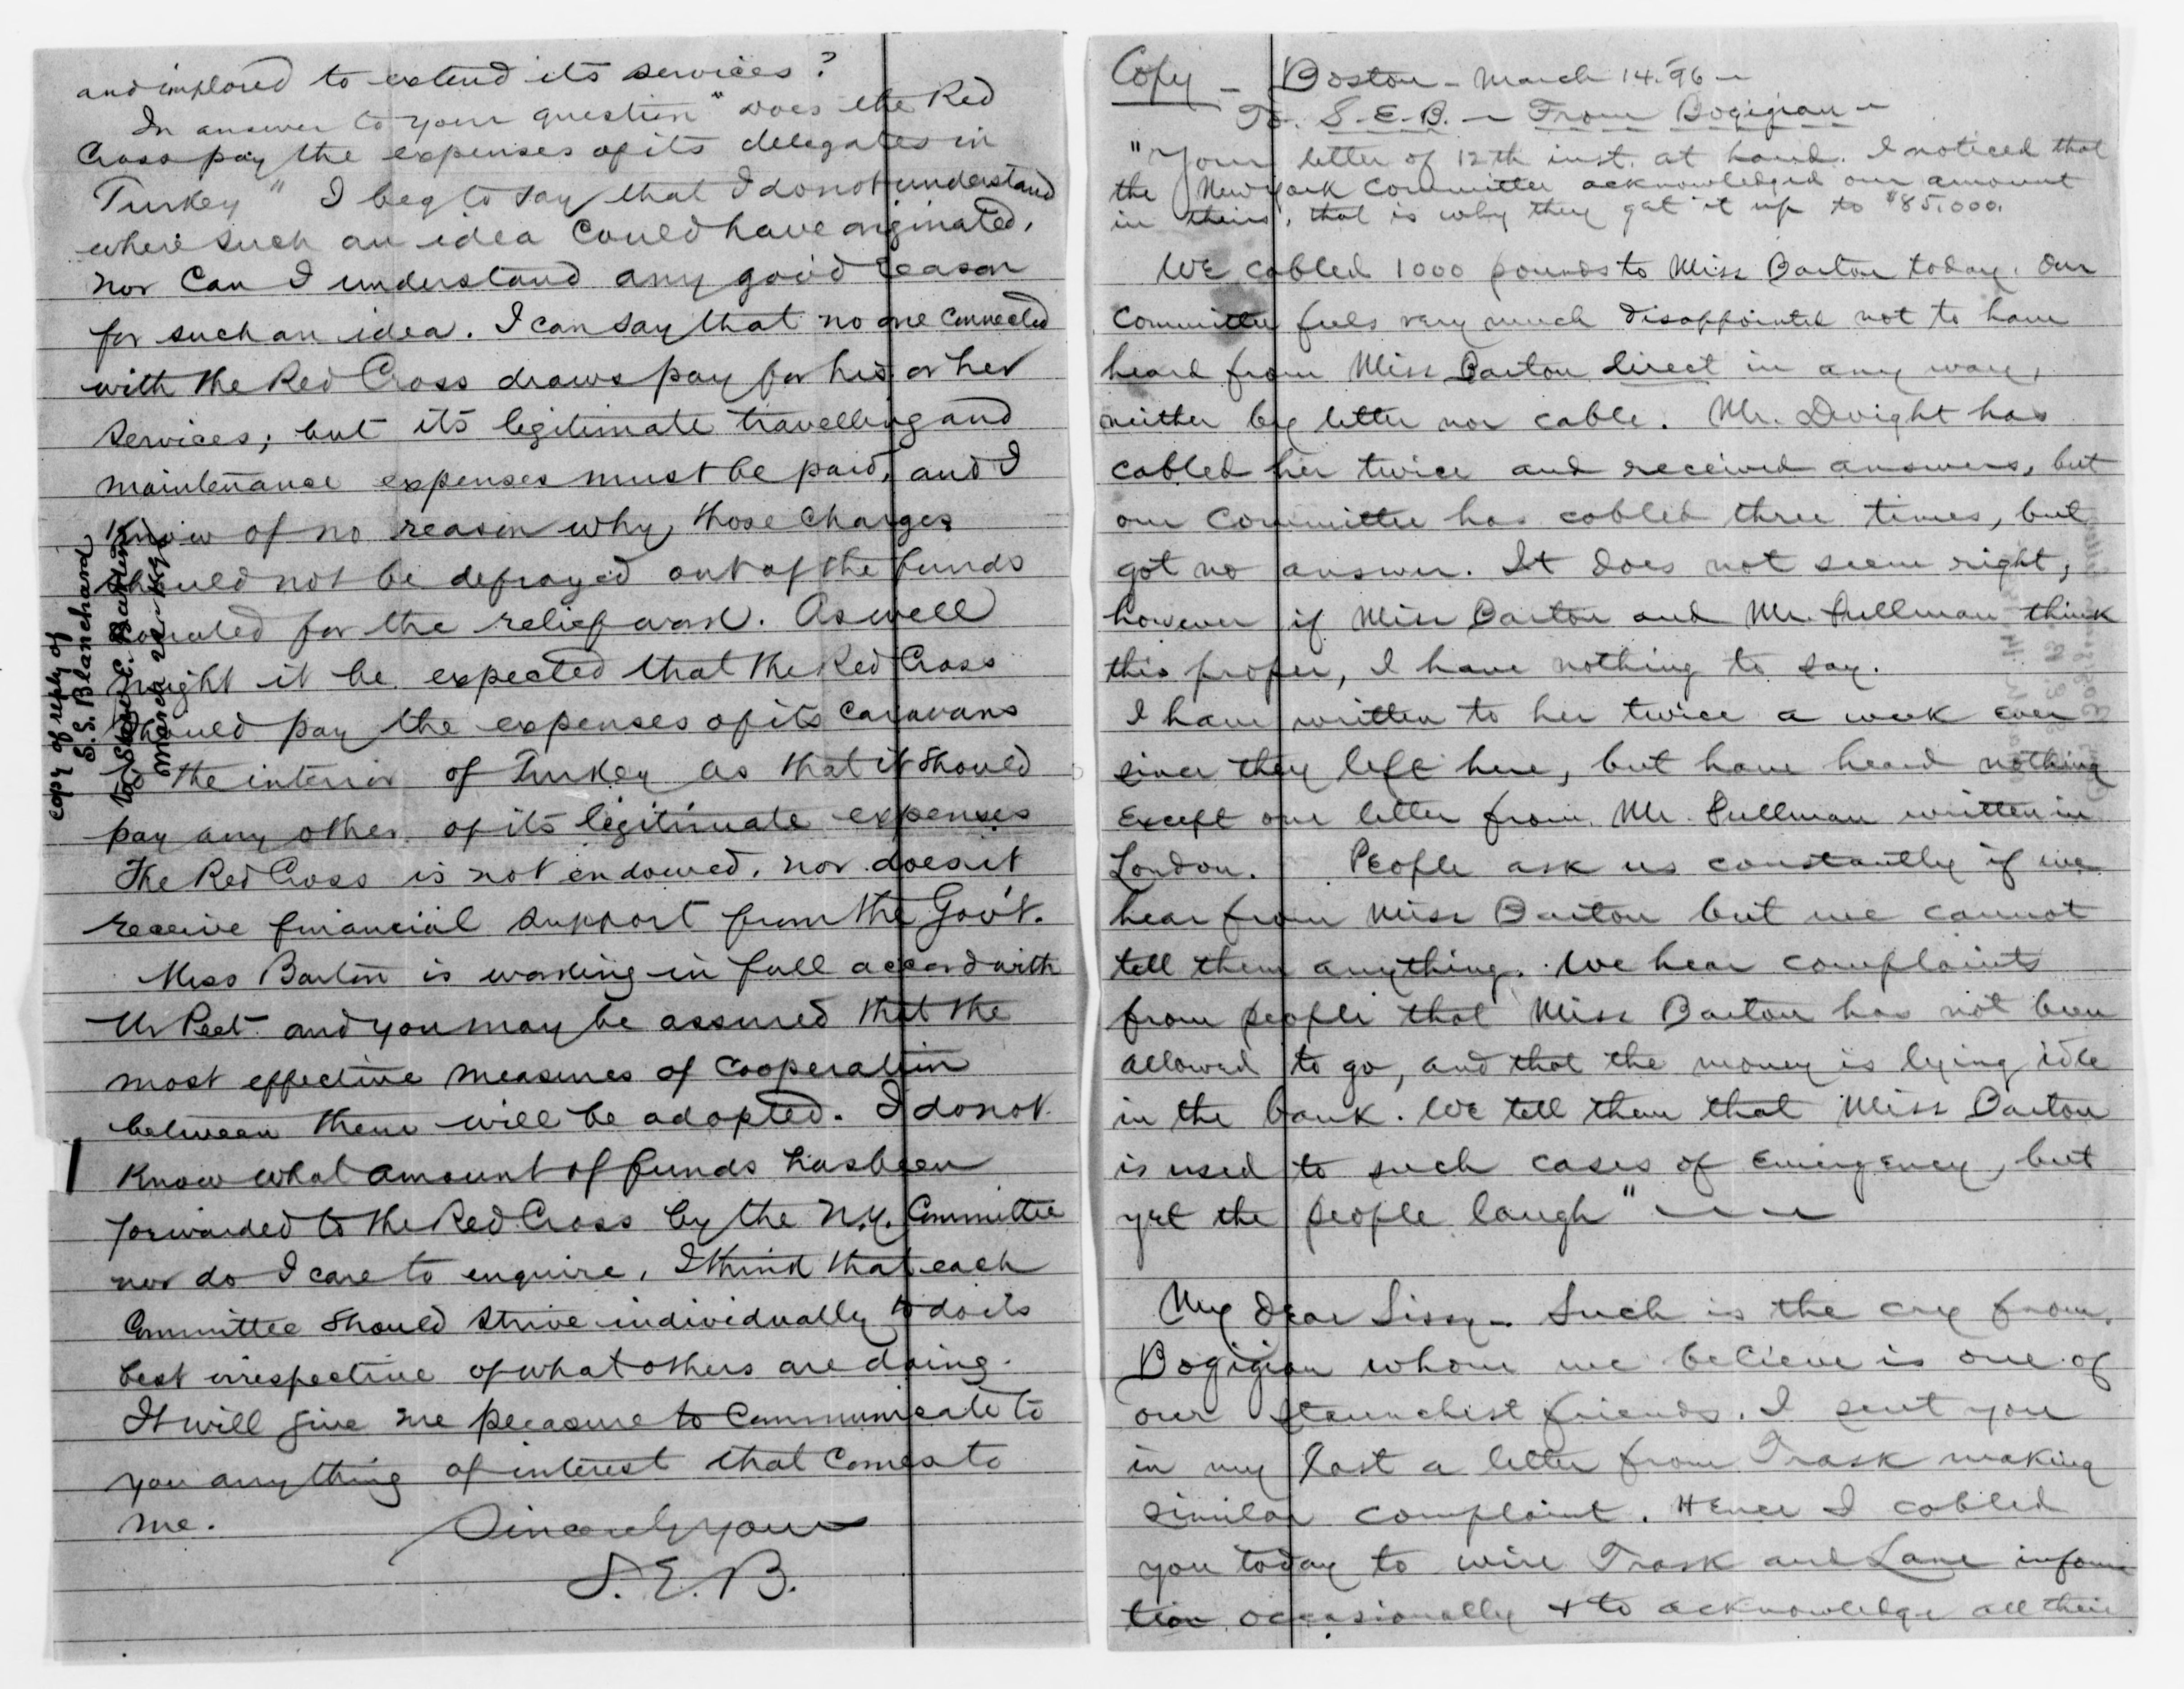 and implored to extend its services?
In answer to your question "does the Red
Cross pay the expenses of its delegates in
Turkey" I beg to say that I do not understand
where such an idea could have originated,
nor can I understand any good reason
for such an idea. I can say that no one connected
with the Red Cross draws pay for his or her
services; but its legitimate travelling and
maintenance expenses must be paid, and I
know of no reason why those charges
should not be defrayed out of the funds
donated for the relief work. As well
might it be expected that the Red Cross
should pay the expenses of its caravans
to the interior of Turkey as that it should
pay any other of its legitimate expenses
The Red Cross is not endowed, nor does it
receive financial support from the Gov't.
Miss Barton is working in full accord with
Mr Peet and you may be assured that the
most effective measures of cooperation
between them will be adopted. I do not
know what amount of funds has been
forwarded to the Red Cross by the N.Y. Committee
nor do I care to enquire, I think that each
Committee should strive individually to do its
best irrespective of what others are doing.
It will give me pleasure to communicate to
you anything of interest that comes to
me.
Sincerely yours
S. E. B.
copy of reply of
S. S. Blanchard
to Stephen E. Barton
March
Copy - Boston - March 14. 96 -
To. S. E. B. - From Bogigian -
"Your letter of 12th inst. at hand. I noticed that
the New York Committee acknowledged our amount
in theirs, that is why they got it up to $85,000.
We cabled 1000 pounds to Miss Barton today. Our
Committee feels very much disappointed not to have
heard from Miss Barton direct in any way,
neither by letter nor cable. Mr. Dwight has
cabled her twice and received answers, but
our Committee has cabled three times, but
got no answer. It does not seem right,
however if Miss Barton and Mr. Pullman think
this proper, I have nothing to say.
I have written to her twice a week ever
since they left here, but have heard nothing
except one letter from Mr. Pullman written in
London. People ask us constantly if we
hear from Miss Barton but we cannot
tell them anything. We hear complaints
from people that Miss Barton has not been
allowed to go, and that the money is lying idle
in the bank. We tell them that Miss Barton
is used to such cases of emergency, but
yet the people laugh" - - -
My dear Sissy - Such is the cry from
Bogigian whom we believe is one of
our staunchest friends. I sent you
in my last a letter from Trask making
similar complaint. Hence I cabled
you today to wire Trask and Lane informa
tion occasionally + to acknowledge all their